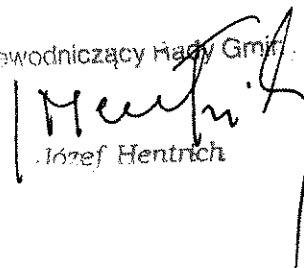 ewodniczący Rady Gmin
Józef Hentrich